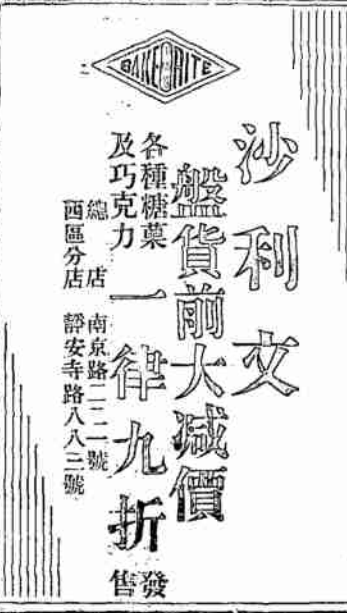 BAKERITE
沙利文
盤貨前大减價
各種糖菓
及巧克力
一律九折
發售
總店 南京路二二一號
西區分店 靜安寺路八八三號